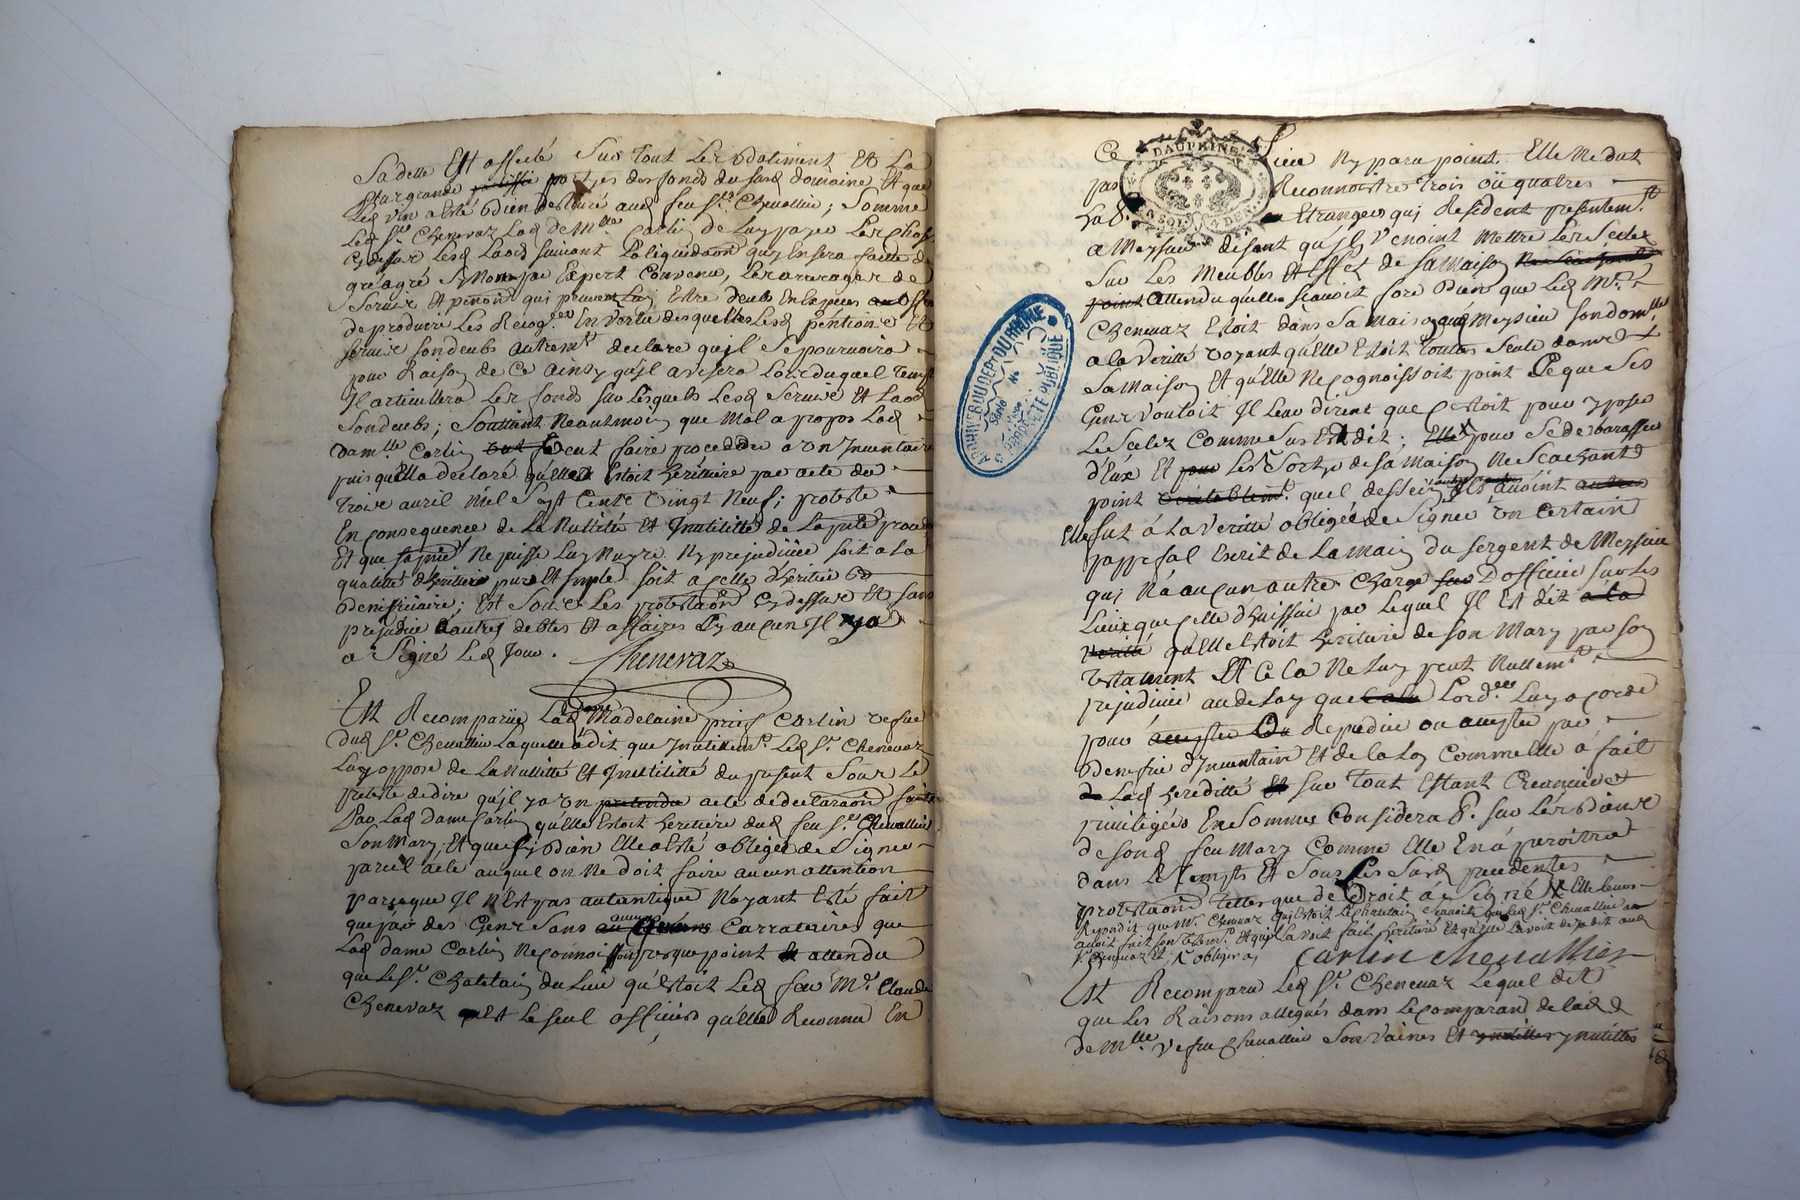 Sa dette Est affecté sur tout les batiment Et La
plus grande partie des fonds du susd domaine Et que
Led vin a esté bien delivré aud feu Sr Chevallier; somme
Led Sr Chenevaz Lad deMlle Carlin de Luy payer Les choses
Cy dessus
gré agré Sy Mons par Expert Convenu, Les arrerages de
Servis Et penõn qui peuvent Luy Estre deubs En Especes
de produire Les Recogces En Vertu des quelles Lesd pention Et
servis sondeubs autremt declare qu'il Se pourvoira
pour Raison de ce ainsy qu'il avisera Lors duquel Temps
Il articulera Les fonds sur Lesquels Lesd Servis Et Laod
Sondeubs; Soutient Neautmoins que Mal a propos Lad
damlle Carlin veut faire proceddé a un Inventaire
puis qu'Ella declaré qu'elle Estoit heritiere par acte du
Trois avril Mil Sept Cents Vingt Neuf; proteste
En consequence de La Nullité Et Inutillité de La pnte procedure
Et que Jamais Ne puisse Luy Nuyre Ny prejudicier soit a La
qualitté d'heritier pure Et simple soit a celle d'heritier
beneficiaire; Est Sous Les protestaõn Cy dessus Et sans
prejudice d'autres debtes Et affaires Sy aucun Il y a
a Signé Led Jour.
Chenevaz
Est Recomparüe Lad dame Madelaine Carlin vefve
dud Sr Chevallier Laquelle a dit que Inutillemt Led Sr Chenevaz
Luy oppose de La Nullitté Et Inutilitté du present Sous Le
preteste de dire qu'il y a un pretendu acte de declaraõn faite
par Lad dame Carlin qu'Elle Estoit heritiere dud feu Sr Chevallier
Son Mary, Et que sy bien Elle a Esté obligée de Signer
pareil acte auquel on Ne doit faire aucun attention
parceque Il n'Est pas autantique N'ayant Esté fait
que par des Gens Sans aucun Carractaires que
Lad dame Carlin Ne connoissoit presque point Et attendu
que Le Sr Chatelain du Lieu qu'Estoit Led feu Mr Claude
Chenevaz Est Le seul officier qu'elle Reconnu En
DAUPHINE
Ce Lieu Ny paru point. Elle Ne dut
pas Reconnoistre Trois oü quatres
Etrangers qui Resident presentemt
a Meysieu disant qu'ils Venoint Mettre Les Scelez
Sur Les Meubles Et Effet de sa Maison
point attendu qu'elle scavoit fort bien que Led Mr
Chenevaz Estoit dans Sa Maison aud Meysieu sondomlle
a la Veritté voyant qu'Elle Estoit toutes seule dans
Sa Maison Et qu'Elle Ne Cognoissoit point Ce que Ses
Gens Vouloit Il Leur dirent que C'estoit pour y poser
Le Scelez Comme Sus Est dit; Elle pour Se debarasser
d'Eux Et Les Sortye de sa Maison Ne Scachant
point veritablemt quel dessein Ils avoint
Elle fut á La Veritté obligée de Signer un Certain
Ecrit de La Main du sergent de Meysieu
qui N'a aucun autre Charge D'officier sur Les
Lieux que Celle d'huissier par Lequel Il Est dit a la
verité qu'Elle Estoit heritiere de son Mary par son
Testament Et Ce La Ne Luy peut Nullemt
prejudicier au delay que Lordces Luy a cordé
pour accepter Ou Repudier ou accepter par
benefice d'Inventaire Et de la Loy Comme Elle a fait
Lad heredité Et sur Tout Estant Creanciere
privilegiée En Sommes Considerab. sur Les biens
de sond feu Mary Comme Elle En a peroitra
dans Le Temps Et Sous Les Susd precedentes
protestaõns telles que de Droit á Signé
Repondit que Mr Chenevaz qu'Estoit Le Chatelain Scavoit que Led Sr Chevallier
avoit fait son Testamt Et qui La voit fait heritiere
Sr Chenevaz Et L'obligea
Carlin Chevallier
Est Recomparu Led Sr Chenevaz Lequel dit
que Les Raisons allegués dans Le comparand de Lad
deMlle Vefve Chevallier Son Vaines Et ynutilles ynutilles